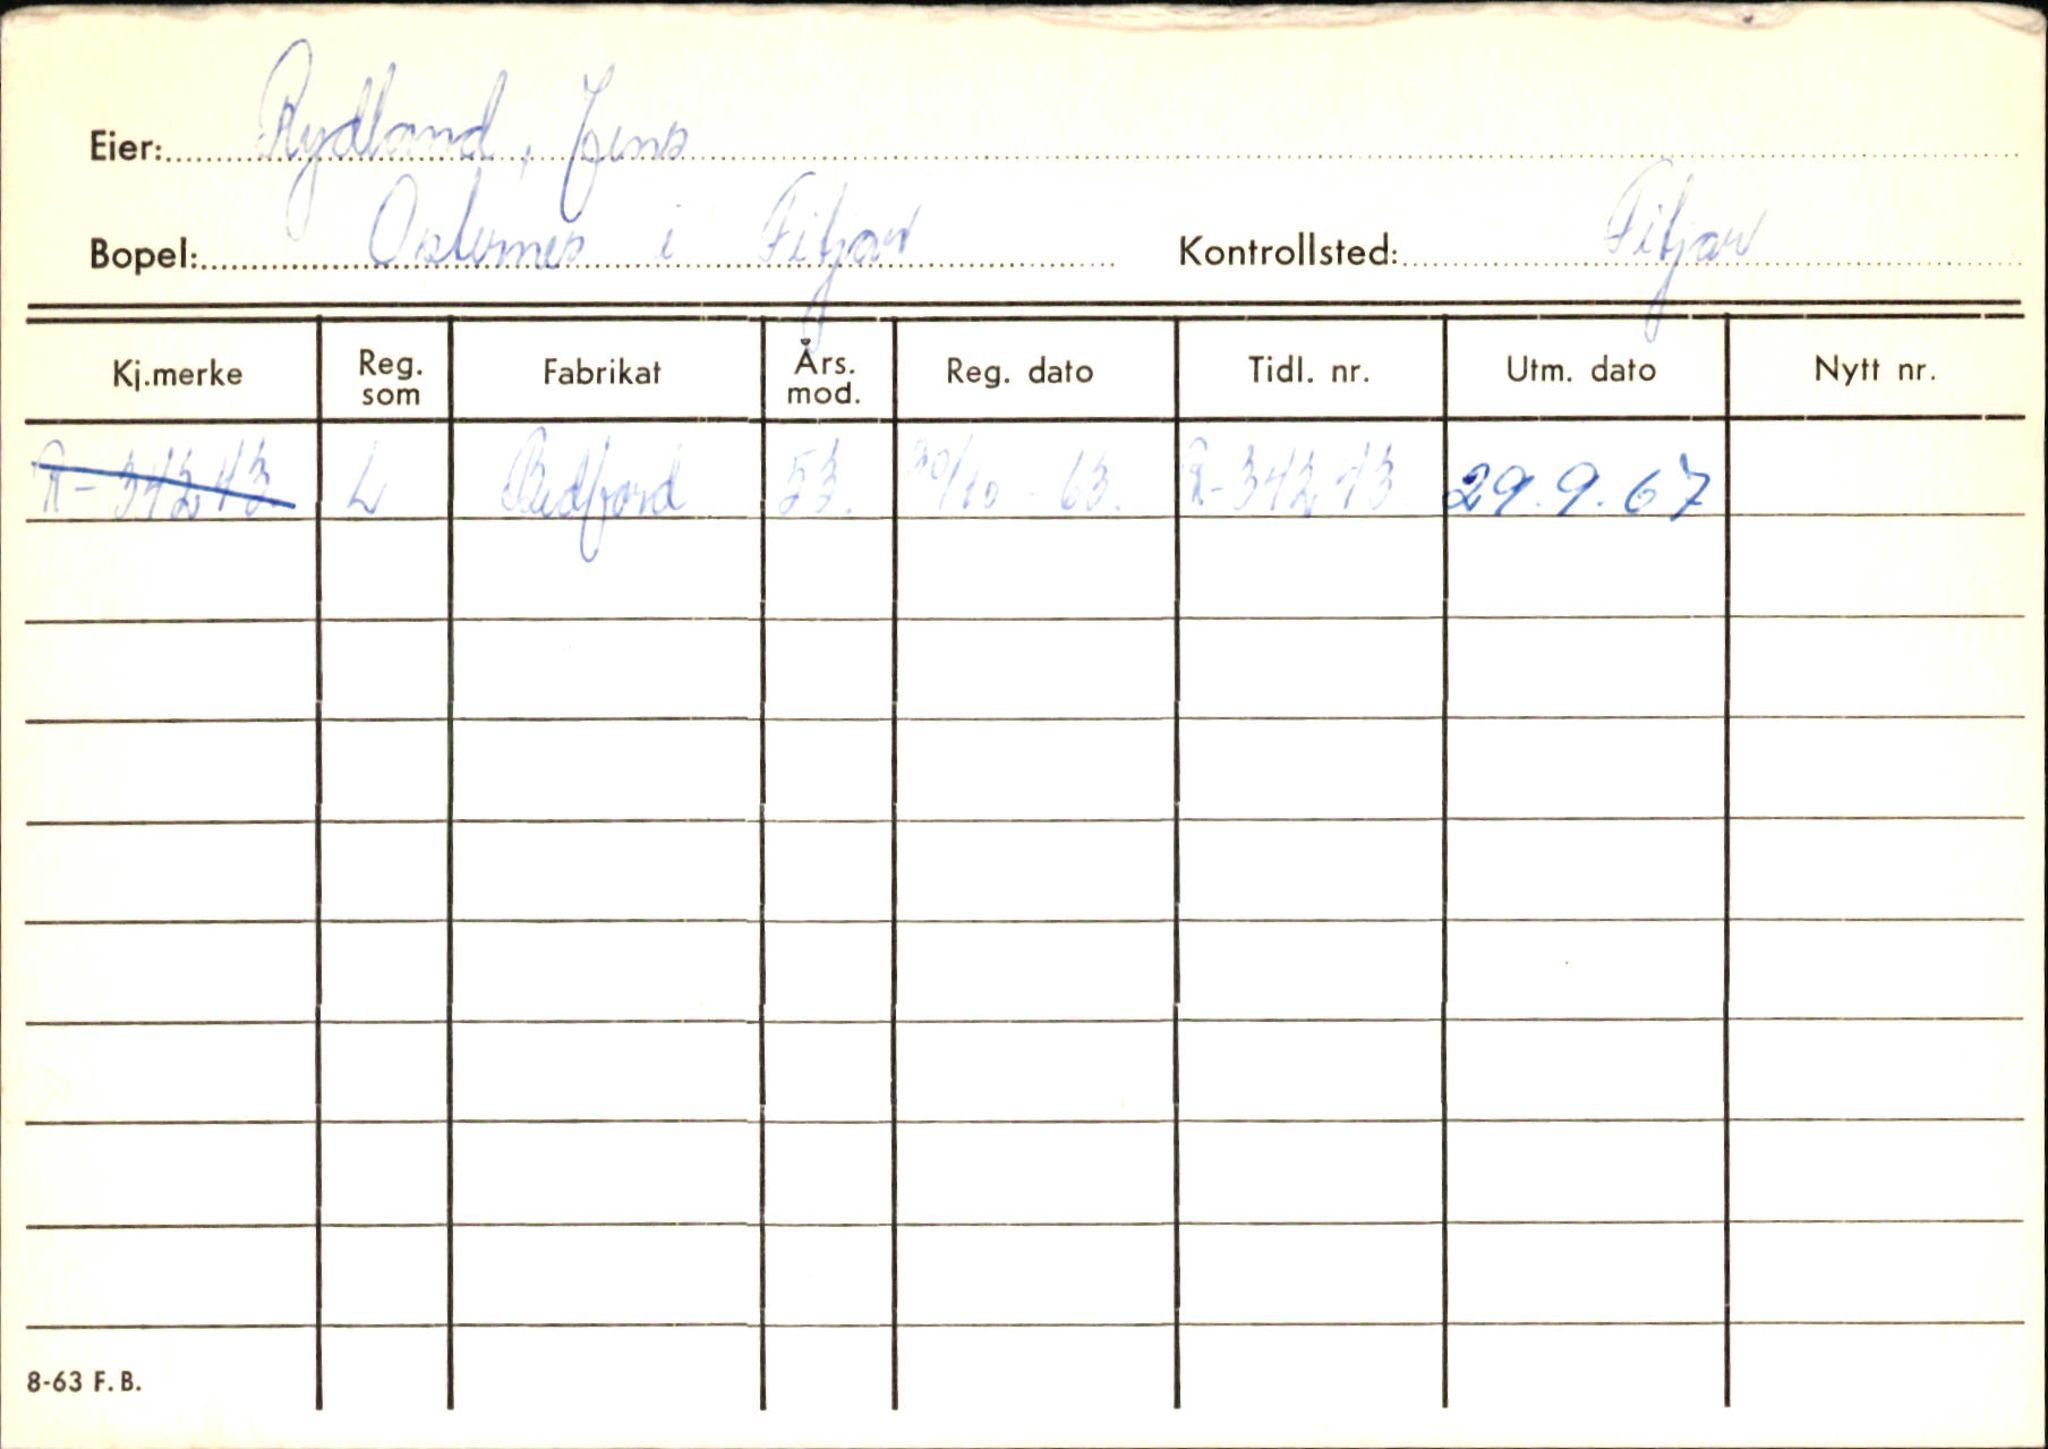 Eier: Rydland, Jens
Bopel: Osternes i Fitjar Kontrollsted: Fitjar
Kj.merke Reg. som Fabrikat Års. mod. Reg. dato Tidl. nr. Utm. dato Nytt nr.
R-34243 L Bedford 53. 30/10 - 63. R-34243 29.9.67
8-63 F. B.